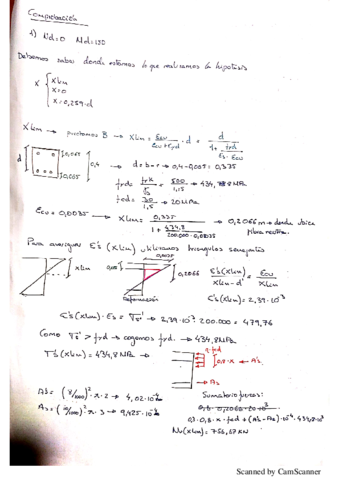 Comprobación
1) Nd=0 Md=150
Debemos saber donde estamos y que realizamos la hipótesis
x { xlim
x=0
x=0,259·d
Xlim → pivotamos B → Xlim = Ecu / (Ecu+Eyd) · d = d / (1+ fyd/(Es·Ecu))
d
0,065
0,4
0,065
d=h-r → 0,4-0,065 = 0,335
fyd = fyk/γs = 500/1,15 → 434,78 MPa
fcd = 30/1,5 → 20 MPa
Ecu = 0,0035 → Xlim = 0,335 / (1 + 434,8/(200.000·0,0035)) → 0,2066 m → donde ubica fibra neutra.
Para averiguar E's (xlim) utilizamos triangulos semejantes
xlim
0,065
0,0035
0,2066
Deformación
E's(xlim) / (xlim - d') = Ecu / xlim
E's(xlim) = 2,39·10⁻³
E's(xlim)·Es = σs' → 2,39·10⁻³·200.000 = 479,76
Como σs' > fyd → cogemos fyd → 434,8 MPa.
σ's(xlim) = 434,8 MPa →
η·fcd
0,8·x
A's
As
A's = (8/1000)²·π·2 → 4,02·10⁻⁴
As = (10/1000)²·π·3 → 9,425·10⁻⁴
Sumatorio fuerzas:
0,3·0,8·x·fcd + (A's-As)·10⁻⁴·434,8·10³
Nu(xlim) = 756,67 KN
Scanned by CamScanner